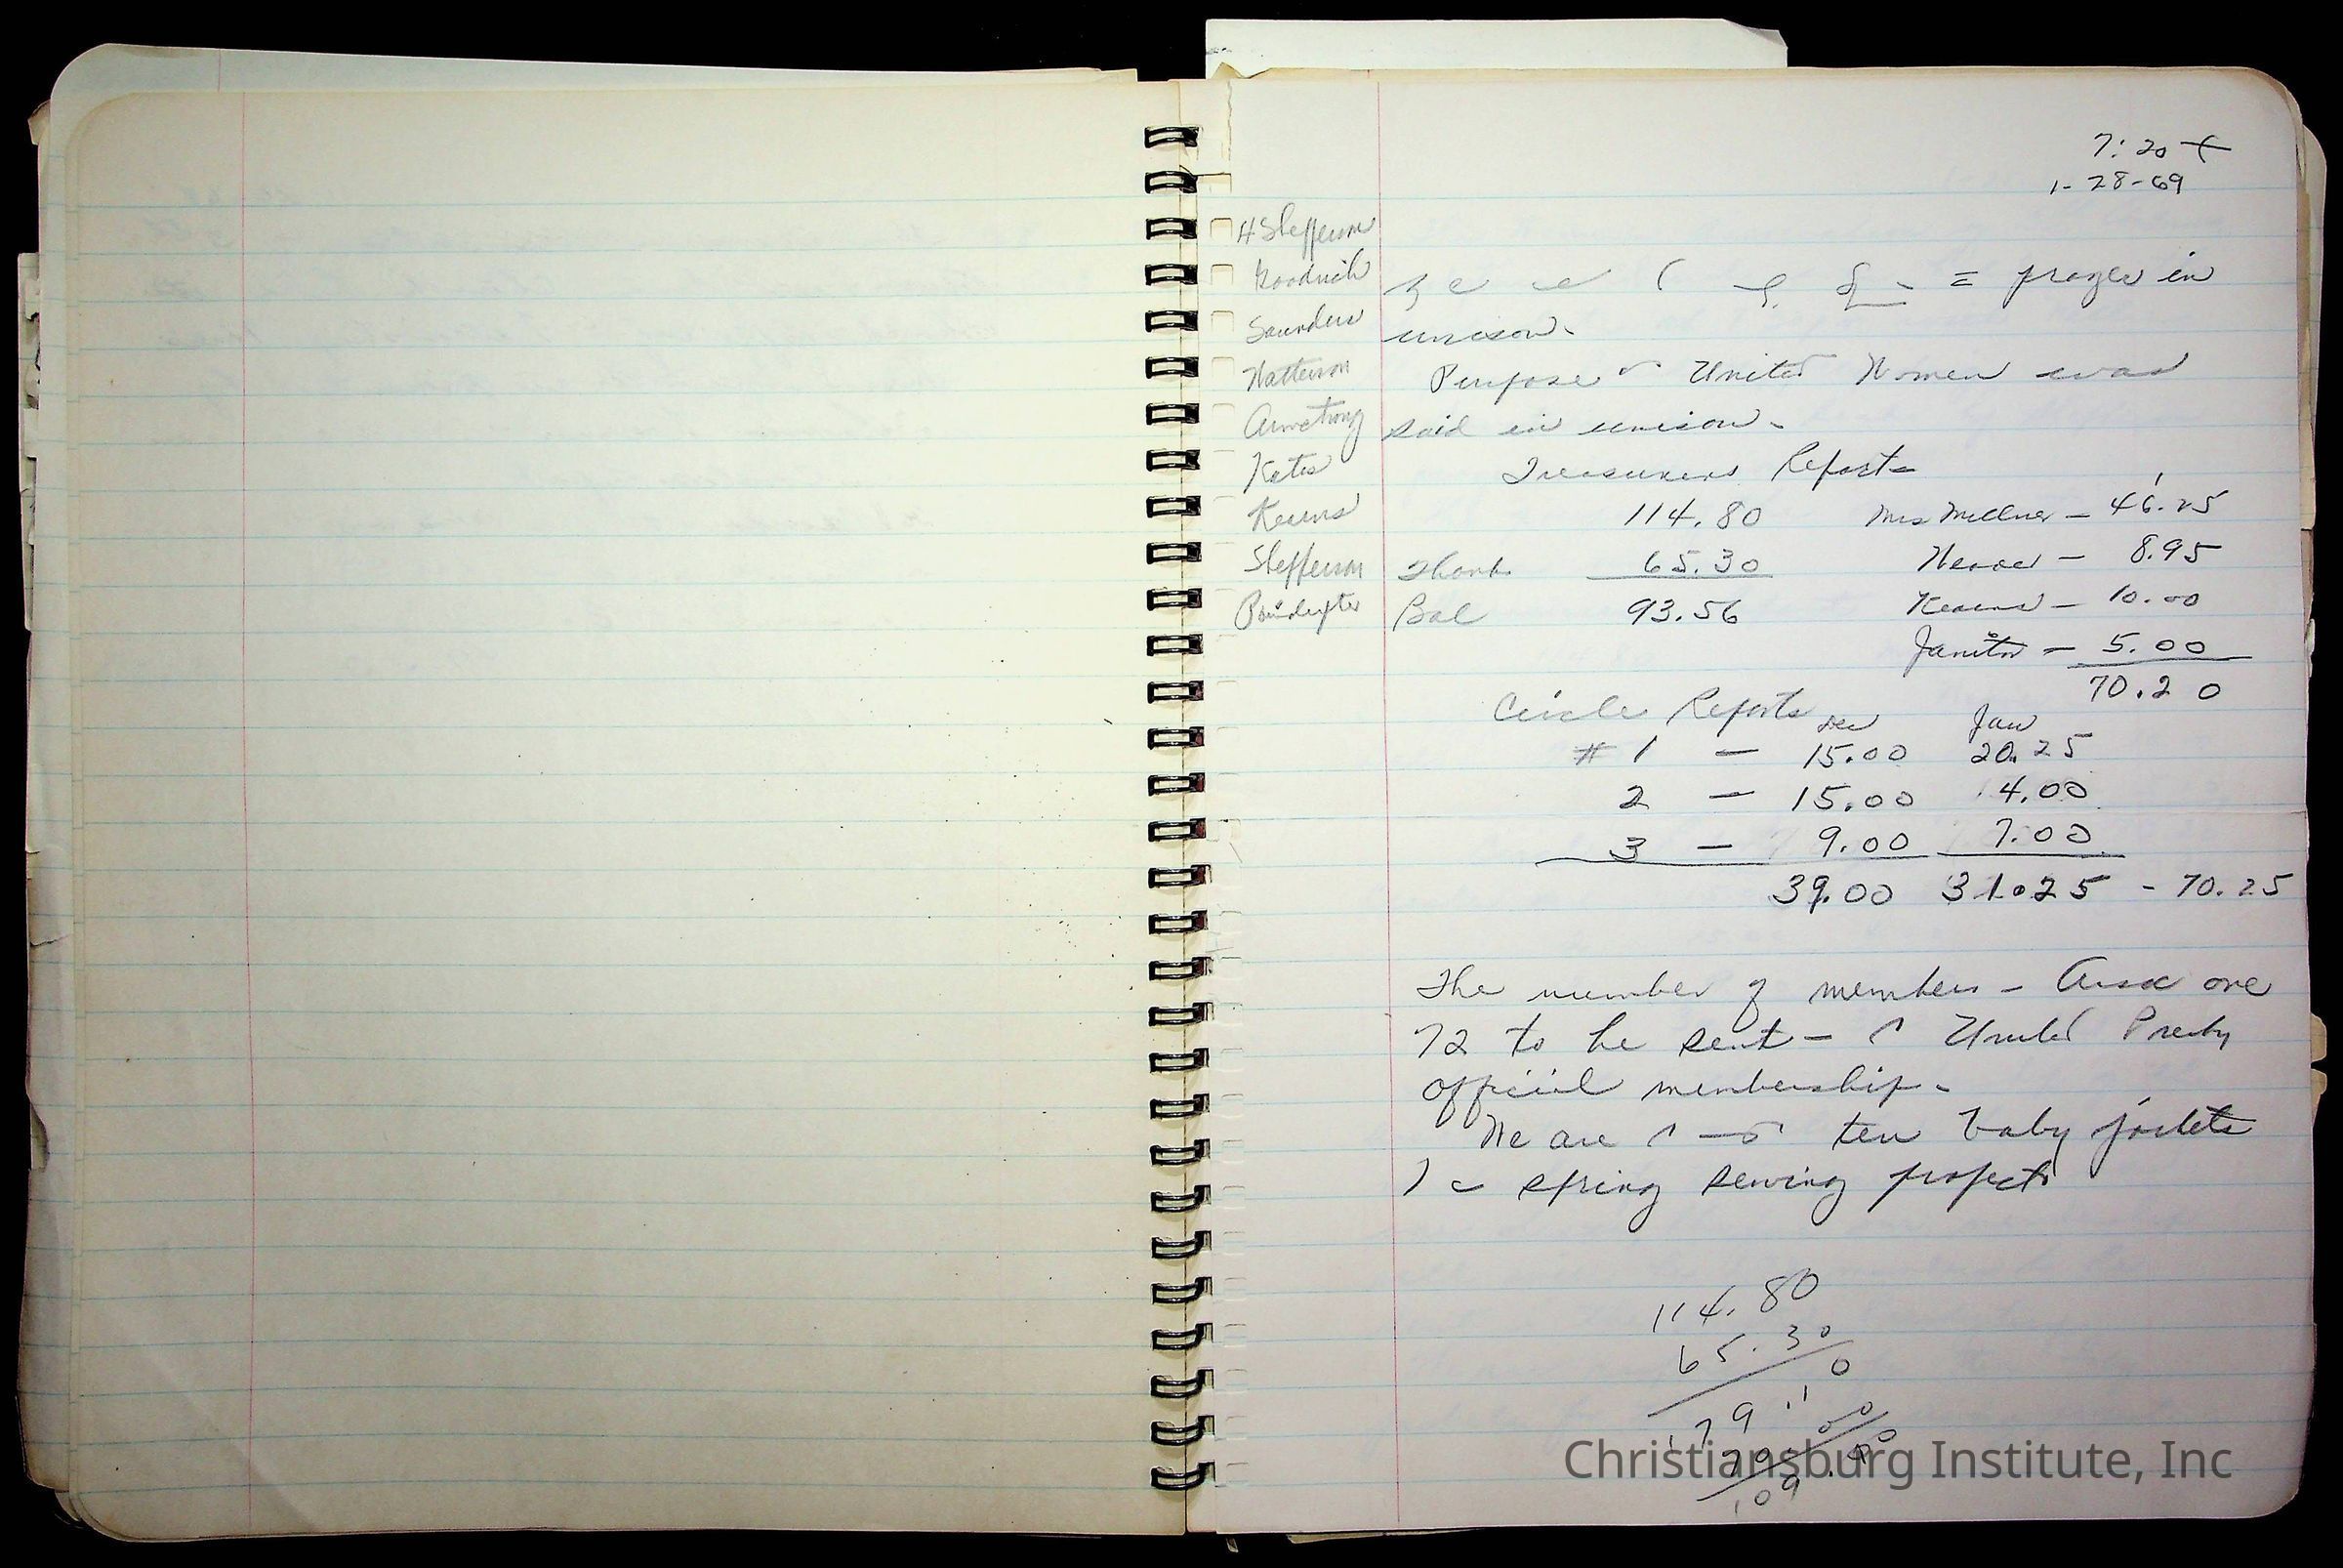 7:20
1-28-69
H Slefferson
Goodrich
prayer in
Saunders
unison.
Watterson
Purpose United Women was
Armstrong
said in unison.
Kates
Treasurers Report-
Kearns
114.80 Mrs Millner - 46.25
Slefferson
Thank 65.30 - 8.95
Poindexter
Bal 93.56 Kearns - 10.00
Janitor - 5.00
70.20
Circle Reports Dec Jan
# 1 - 15.00 20.25
2 - 15.00 4.00
3 - 9.00 7.00
39.00 31.25 - 70.25
The number of members - Area one
72 to be sent - United Presby
official membership.
We are ten baby jackets
spring sewing project
114.80
65.30
Christiansburg Institute, Inc